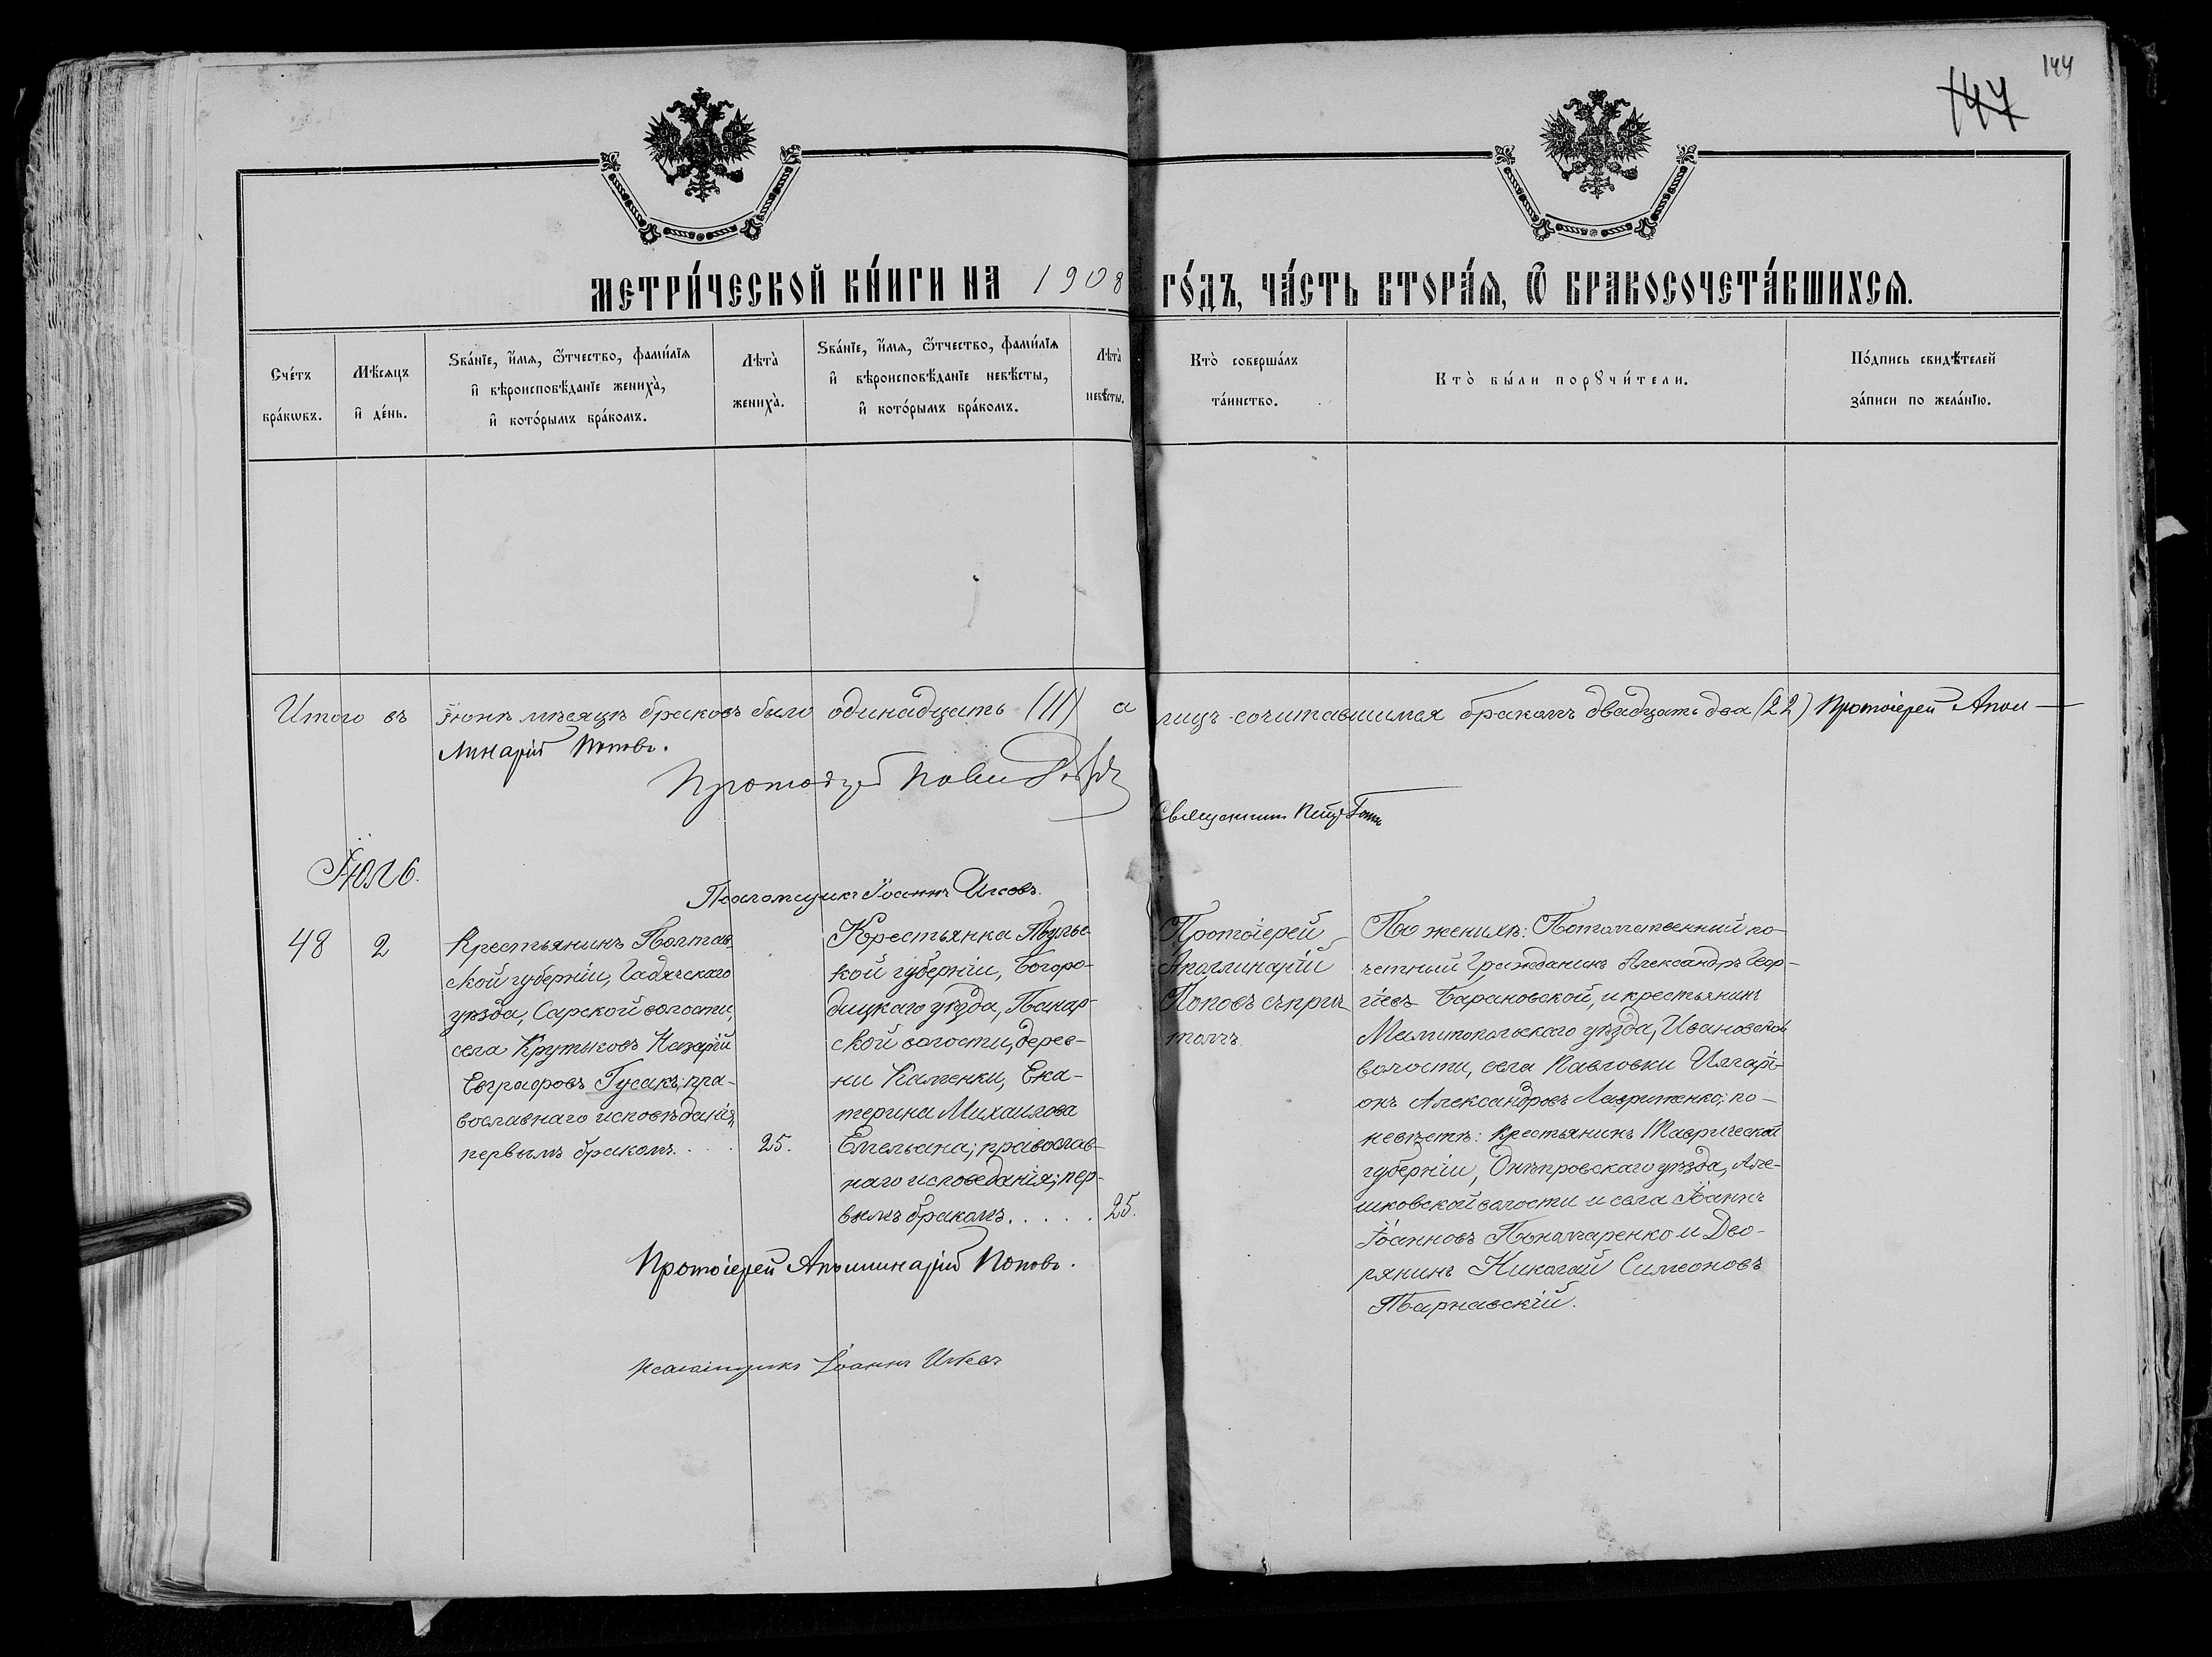 144
147
МЕТРИ́ЧЕСКОЙ КНИ́ГИ НА 1908 ГО́ДЪ, ЧА́СТЬ ВТОРА́Я, Ѿ БРАКОСОЧЕТА́ВШИХСЯ.
Сче́тъ
бра́кѡвъ.
Мѣ́сяцъ
и҆ де́нь.
Ѕва́нїе, и҆́мя, ѻ҆́тчество, фами́лїя
и҆ вѣроисповѣ́данїе жениха̀,
и҆ кото́рымъ бра́комъ.
Лѣта̀
жениха̀.
Ѕва́нїе, и҆́мя, ѻ҆́тчество, фами́лїя
и҆ вѣроисповѣ́данїе невѣ́сты,
и҆ кото́рымъ бра́комъ.
Лѣта̀
невѣ́сты.
Кто̀ соверша́лъ
та́инство.
Кто̀ бы́ли порꙋчи́тели.
По́дпись свидѣ́телей
за́писи по жела́нїю.
Итого въ Іюнѣ мѣсяцѣ браковъ было одинадцать (11) а лицъ сочитавшимся бракомъ двадцать два (22) Протоіерей Апол-
линарій Поповъ.
Священникъ
Іюль.
Псаломщикъ Іоаннъ
48
2
Крестьянинъ Полтав
ской губерніи, Гадячскаго
уѣзда, Сарской волости,
села Крутьковъ Назарій
Евграфовъ Гусакъ; пра-
вославнаго исповѣданія,
первымъ бракомъ. . . .
25.
Крестьянка Тульс
кой губерніи, Богоро-
дицкаго уѣзда,
ской волости, дерев-
ни Каменки, Ека-
терина Михаилова
Емельяна; православ-
наго исповеданія; пер-
вымъ бракомъ. . . . .
25.
Протоіерей
Аполлинарій
Поповъ съ прич
томъ.
По женихѣ: Потомственный по-
четный Гражданинъ Александръ Геор-
гіевъ Барановской, и крестьянинъ
Мелитопольскаго уѣзда, Ивановской
волости, села Павловки Иларі-
онъ Александровъ Лавриненко; по-
невѣстѣ: Крестьянинъ Таврической
губерніи, Днѣпровскаго уѣзда, Але-
шковской волости и села Іоаннъ
Іоанновъ Понамаренко и Дво-
рянинъ Николай Симеоновъ
Тарнавскій.
Протоіерей Аполлинарій Поповъ.
Псаломщикъ Іоаннъ